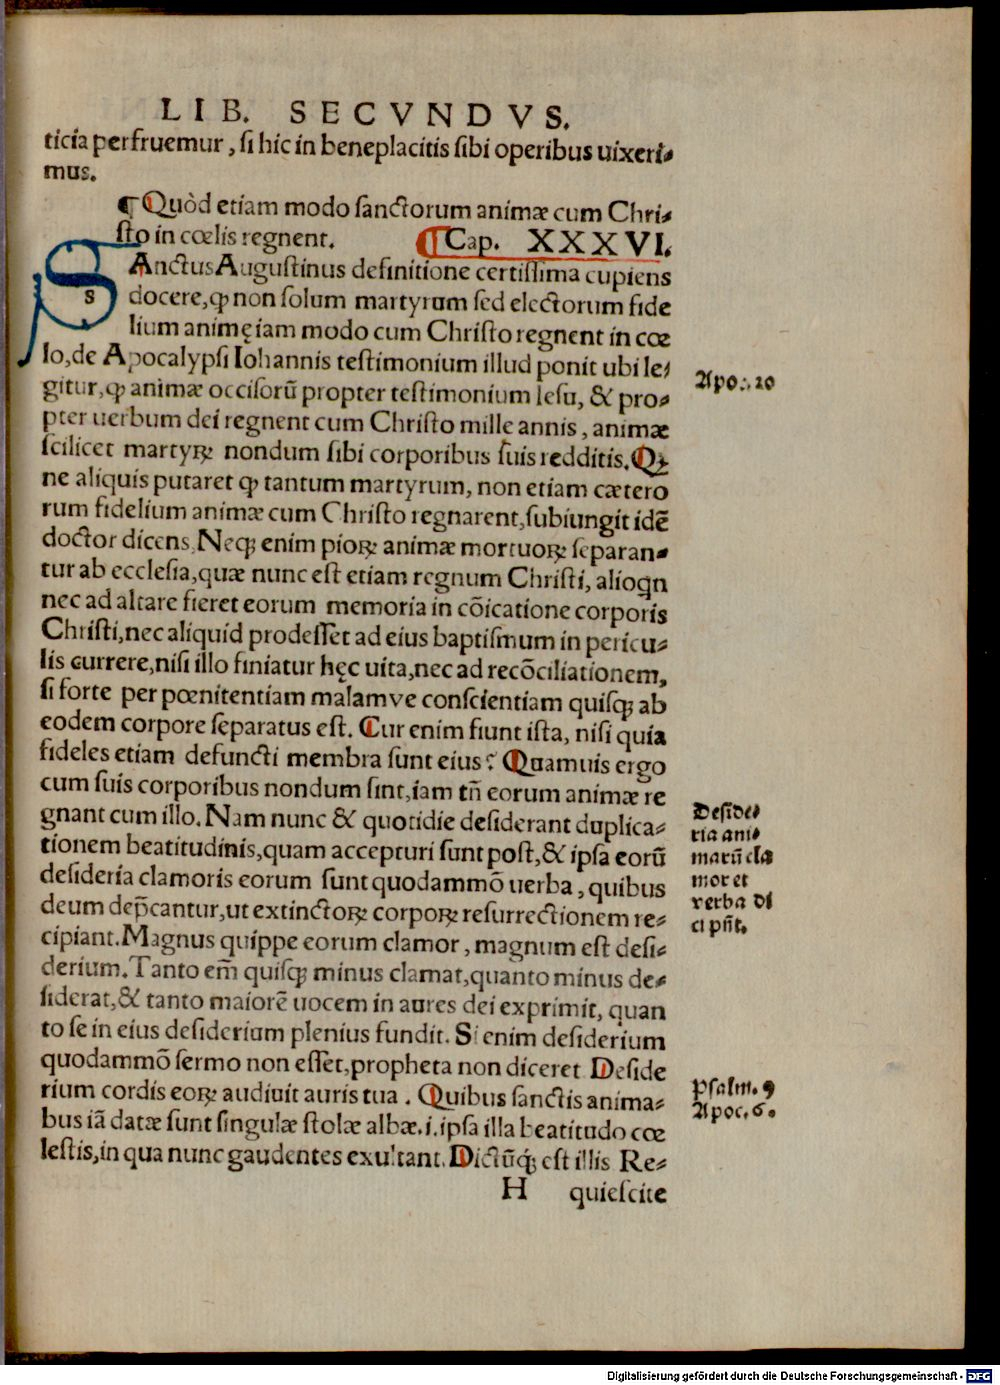 LIB. SECVNDVS.
ticia perfruemur, si hic in beneplacitis sibi operibus uixeri⸗
mus.
¶ Quòd etiam modo sanctorum animæ cum Chri⸗
sto in cœlis regnent. ¶ Cap. XXXVI.
SAnctus Augustinus definitione certissima cupiens
docere, ꝙ non solum martyrum sed electorum fide
lium animę iam modo cum Christo regnent in cœ
lo, de Apocalypsi Iohannis testimonium illud ponit ubi le⸗
gitur, ꝙ animæ occisorũ propter testimonium Iesu, & pro⸗
pter uerbum dei regnent cum Christo mille annis, animæ
scilicet martyꝝ nondum sibi corporibus suis redditis. Qꝫ
ne aliquis putaret ꝙ tantum martyrum, non etiam cætero
rum fidelium animæ cum Christo regnarent, subiungit idẽ
doctor dicens. Neqꝫ enim pioꝝ animæ mortuoꝝ separan⸗
tur ab ecclesia, quæ nunc est etiam regnum Christi, alioqn
nec ad altare fieret eorum memoria in cõicatione corporis
Christi, nec aliquid prodesset ad eius baptismum in pericu⸗
lis currere, nisi illo finiatur hęc uita, nec ad recõciliationem,
si forte per pœnitentiam malamve conscientiam quisqꝫ ab
eodem corpore separatus est. Cur enim fiunt ista, nisi quia
fideles etiam defuncti membra sunt eius? Quamuis ergo
cum suis corporibus nondum sint, iam tñ eorum animæ re
gnant cum illo. Nam nunc & quotidie desiderant duplica⸗
tionem beatitudinis, quam accepturi sunt post, & ipsa eorũ
desideria clamoris eorum sunt quodammõ uerba, quibus
deum dep̃cantur, ut extinctoꝝ corpoꝝ resurrectionem re⸗
cipiant. Magnus quippe eorum clamor, magnum est desi⸗
derium. Tanto em̃ quisqꝫ minus clamat, quanto minus de⸗
siderat, & tanto maiorẽ uocem in aures dei exprimit, quan
to se in eius desiderium plenius fundit. Si enim desiderium
quodammõ sermo non esset, propheta non diceret Deside
rium cordis eoꝝ audiuit auris tua. Quibus sanctis anima⸗
bus iã datæ sunt singulæ stolæ albæ. i. ipsa illa beatitudo cœ
lestis, in qua nunc gaudentes exultant. Dictũqꝫ est illis Re⸗
H quiescite
Apo. 20
Deside⸗
ria ani⸗
marũ cla
mor et
verba di
ci pñt.
Psalm. 9
Apoc. 6.
Digitalisierung gefördert durch die Deutsche Forschungsgemeinschaft - DFG